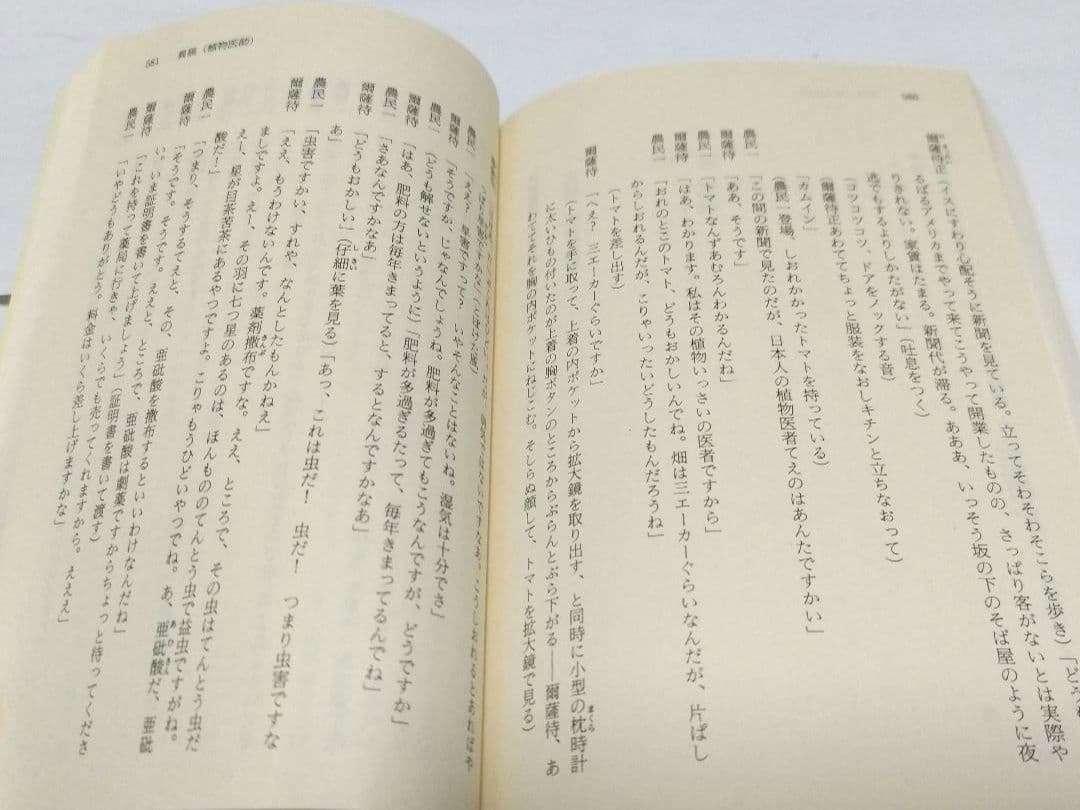 580
爾薩待正（イスにすわり心配そうに新聞を見ている。立ってそわそわそこらを歩き）「どう
るばるアメリカまでやって来てこうやって開業したものの、さっぱり客がないとは実際や
りきれない。家賃はたまる。新聞代が滞る。ああ、いっそう坂の下のそば屋のように夜
逃でもするよりしかたがない」（吐息をつく）
（コツコツコツ、ドアをノックする音）
（爾薩待正あわててちょっと服装をなおしキチンと立ちなおって）
「カムイン」
（農民一登場、しおれかかったトマトを持っている）
農民一「この間の新聞で見たのだが、日本人の植物医者てえのはあんたですかい」
爾薩待「ああ、そうです」
農民一「トマトなんずあむろんわかるんだね」
爾薩待「はあ、わかります。私はその植物いっさいの医者ですから」
農民一「おれのとこのトマト、どうもおかしいんでね。畑は三エーカーぐらいなんだが、片ぱし
からしおれるんだが、こりゃいったいどうしたもんだろうね」
（トマトを差し出す）
爾薩待「へえ？ 三エーカーぐらいですか」
（トマトを手に取って、上着の内ポケットから拡大鏡を取り出す、と同時に小型の枕時計
に太いひもの付いたのが上着の胸ボタンのところからぶらんとぶら下がる――爾薩待、あ
わててそれを胸の内ポケットにねじこむ。そしらぬ顔して、トマトを拡大鏡で見る）
581 異稿（植物医師）
農民一「ええ？ 星害ですって？ いやそんなことはないね。湿気は十分でさ」
爾薩待「そうですか、じゃなんでしょうね。肥料が多過ぎてもこうなんですが、どうですか」
農民一（どうも解せないというように）「肥料が多過ぎるたって、毎年きまってるんでね」
爾薩待「はあ、肥料の方は毎年きまってると、するとなんですかなあ」
農民一「さあなんですかなあ」
爾薩待「どうもおかしい」（仔細に葉を見る）「あっ、これは虫だ！ 虫だ！ つまり虫害ですな
あ」
農民一「虫害ですかい、すれゃ、なんとしたもんかねえ」
爾薩待「ええ、もうわけないんです。薬剤撒布ですな。ええ、ところで、その虫はてんとう虫だ
ましですよ。えー、その羽に七つ星のあるのは、ほんもののてんとう虫で益虫ですがね。
え、星が目茶苦茶にあるやつですよ。こりゃもうひどいやつでね。あ、亜砒酸だ、亜砒
酸だ！」
農民一「つまり、そうするてえと、その、亜砒酸を撒布するといいわけなんだね」
爾薩待「そうです。そうです。ええと、ところで、亜砒酸は劇薬ですからちょっと待ってくださ
い。いま証明書を書いて上げましょう」（証明書を書いて渡す）
爾薩待「これを持って薬局に行きゃ、いくらでも売ってくれますから。ええええ」
農民一「いやどうもありがとう。料金はいくら差し上げますかな」